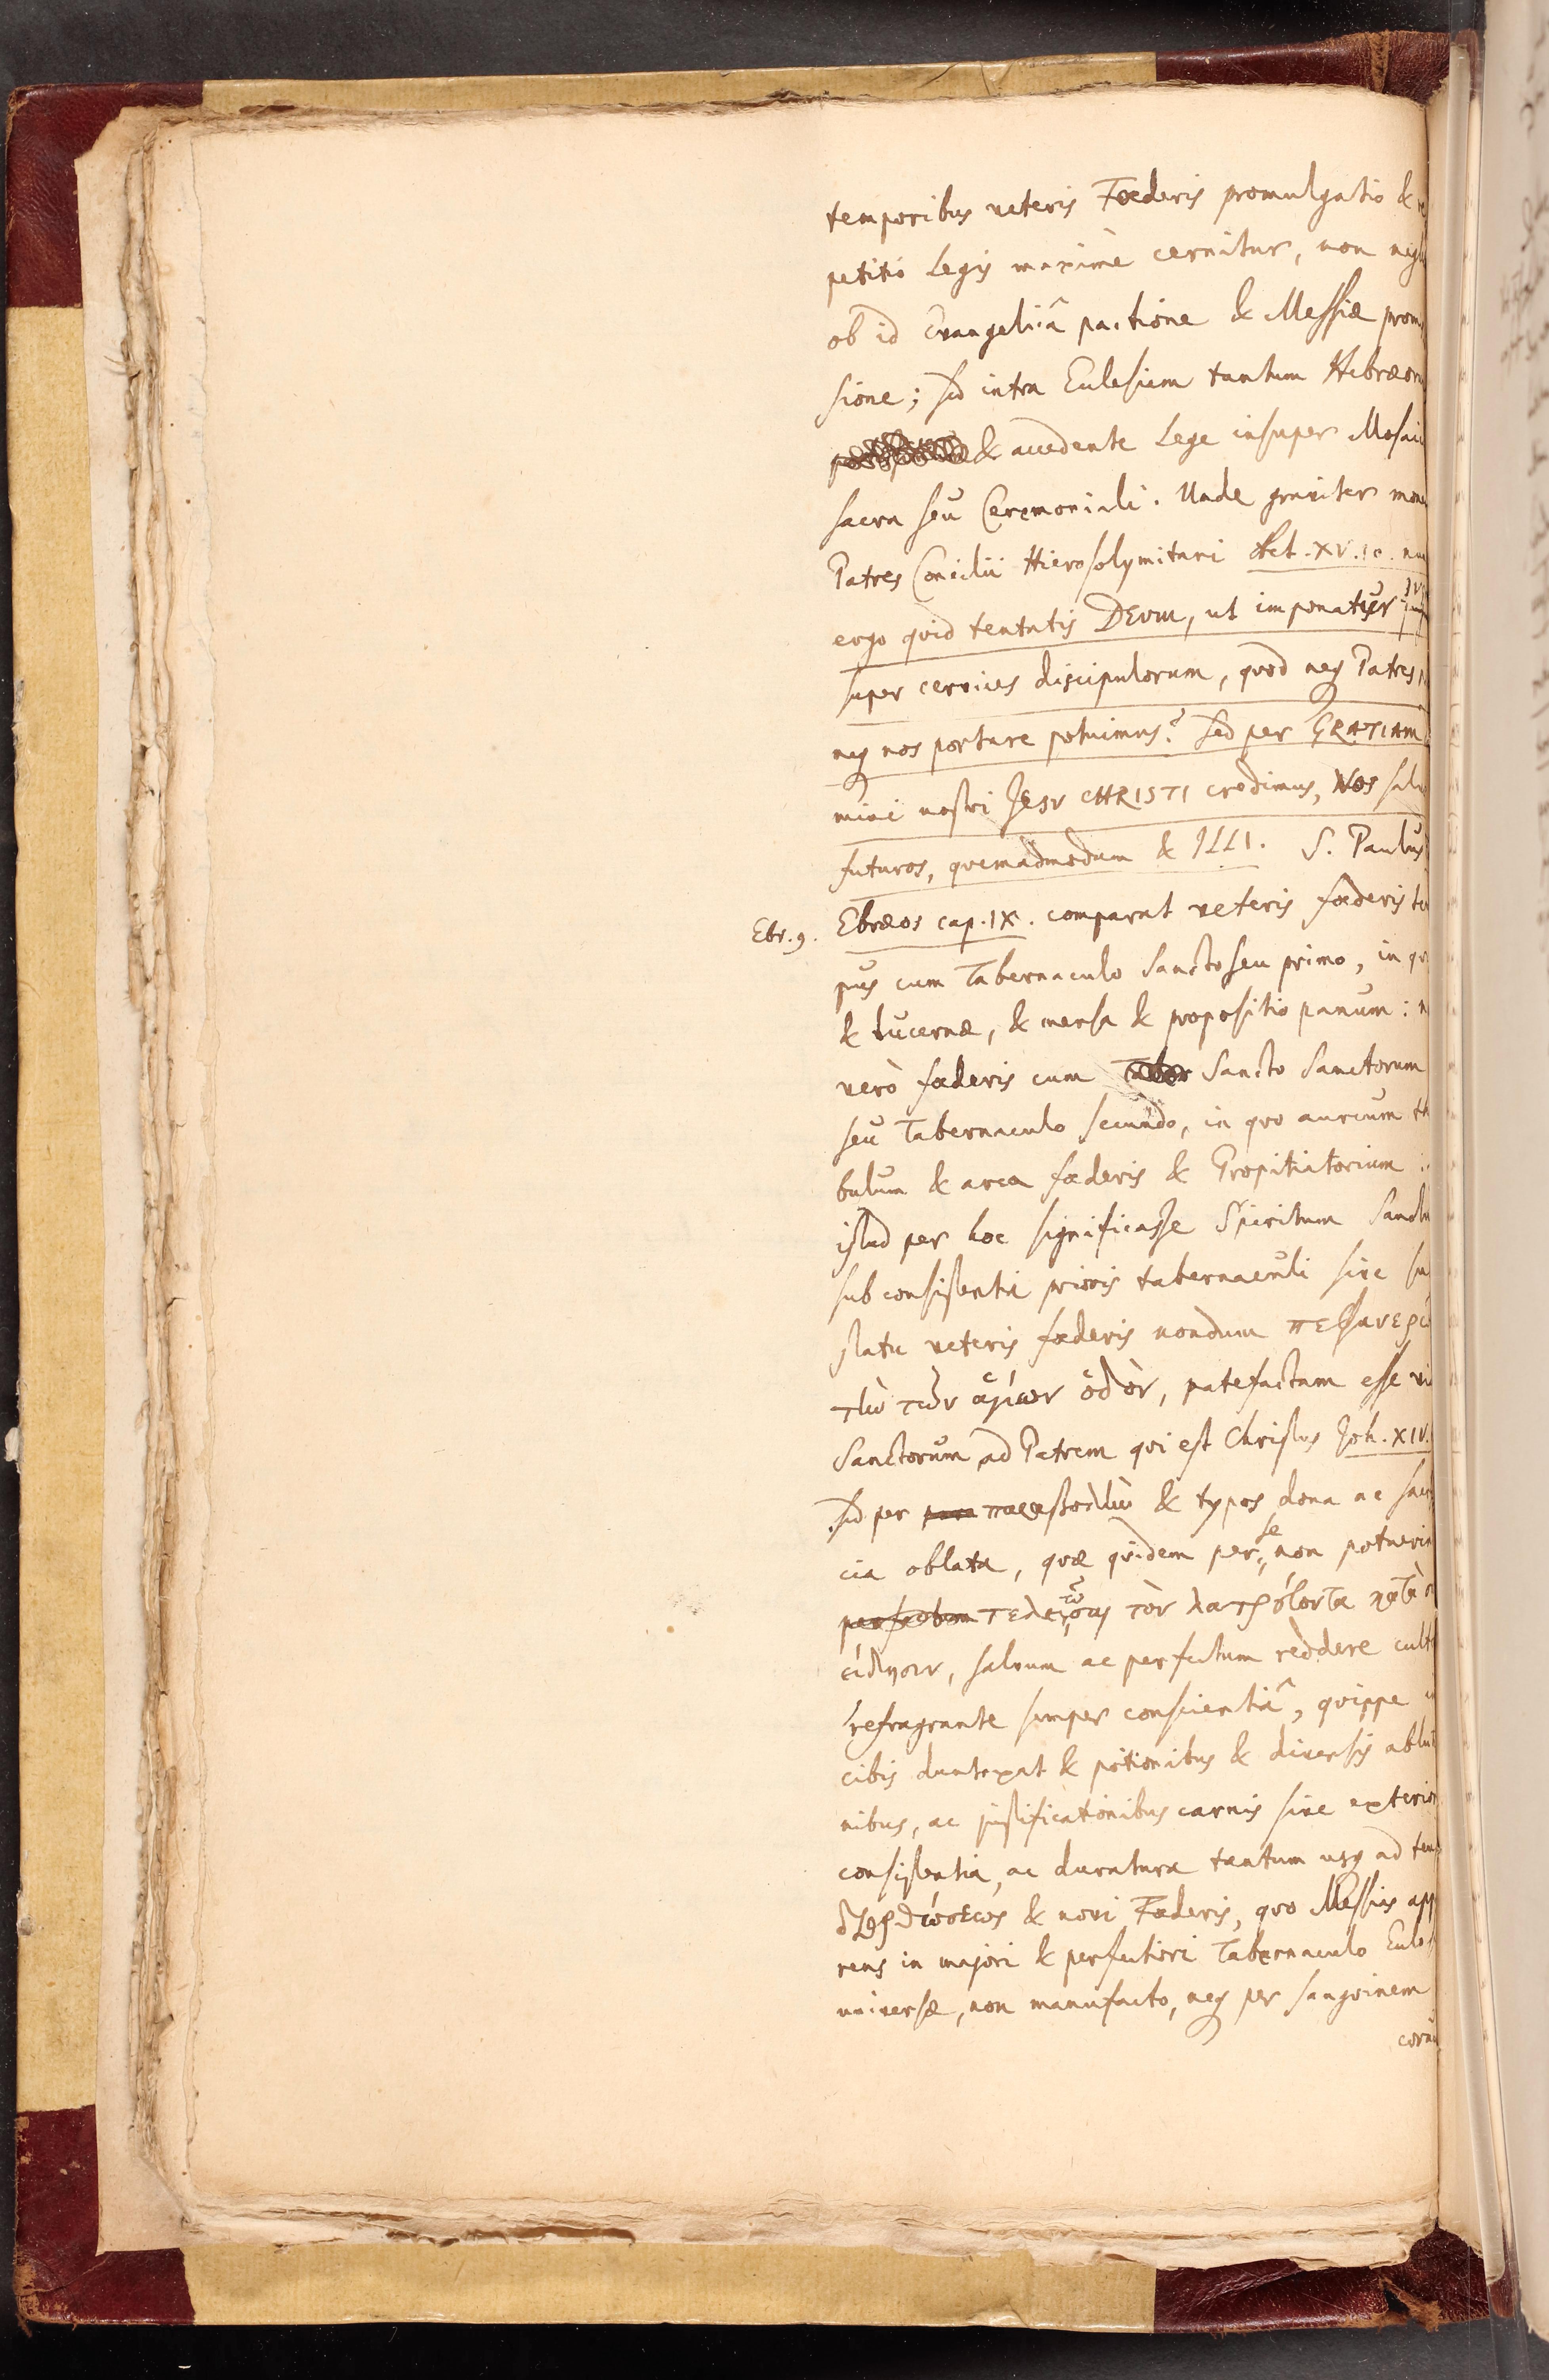 temporibus veteris Fœderis promulgatio &
petitio Legis maximè cernitur, non negl
ob id Evangelicâ pactione & Messiæ prom
sione; sed intra Ecclesiam tantum Hebræoru
& accedente Lege insuper Mosaic
sacra seu Ceremoniali. Unde graviter mon
Patres Concilii Hierosolymitani Act. XV. 10. nu
ergo quid tentatis DEum, ut imponatur
super cervices discipulorum, quod neq Patres
neq nos portare potuimus? Sed per GRATIAM
mini nostri JESV CHRISTI credimus, Nos salv
futuros, quemadmodum & ILLI. S. Paulus
Ebr. 9. Ebræos cap. IX. comparat veteris fœderis te
pus cum Tabernaculo Sancto seu primo, in qv
& lucernæ, & mensa & propositio panum: n
verò fœderis cum Sancto Sanctorum
seu Tabernaculo secundo, in quo aureum th
bulum & arca fœderis & Propitiatorium:
istud per hoc significasse Spiritum Sanctu
sub consistentia prioris tabernaculi sive su
statu veteris fœderis nondum πεφανερῶ
τὼ τῶν ἁγίων ὁδὸν, patefactam esse vi
Sanctorum ad Patrem qui est Christus Joh. XIV.
Sed per para παραβολὼ & typos dona ac sacr
cia oblata, quæ quidem per se non potuerin
perfectum τελειῶσαι τὸν λατρεύοντα κατὰ σ
είδησιν, salvum ac perfectum reddere cult
refragrante semper conscientiâ, quippe i
cibis duntaxat & potionibus & diversis ablut
nibus, ac justificationibus carnis sive exterior
consistentia, ac duratura tantum usq ad tem
διορθώσεως & novi Fœderis, quo Messias app
rens in majori & perfectiori Tabernaculo Eccles
universæ, non manufacto, neq per sangvinem
corun